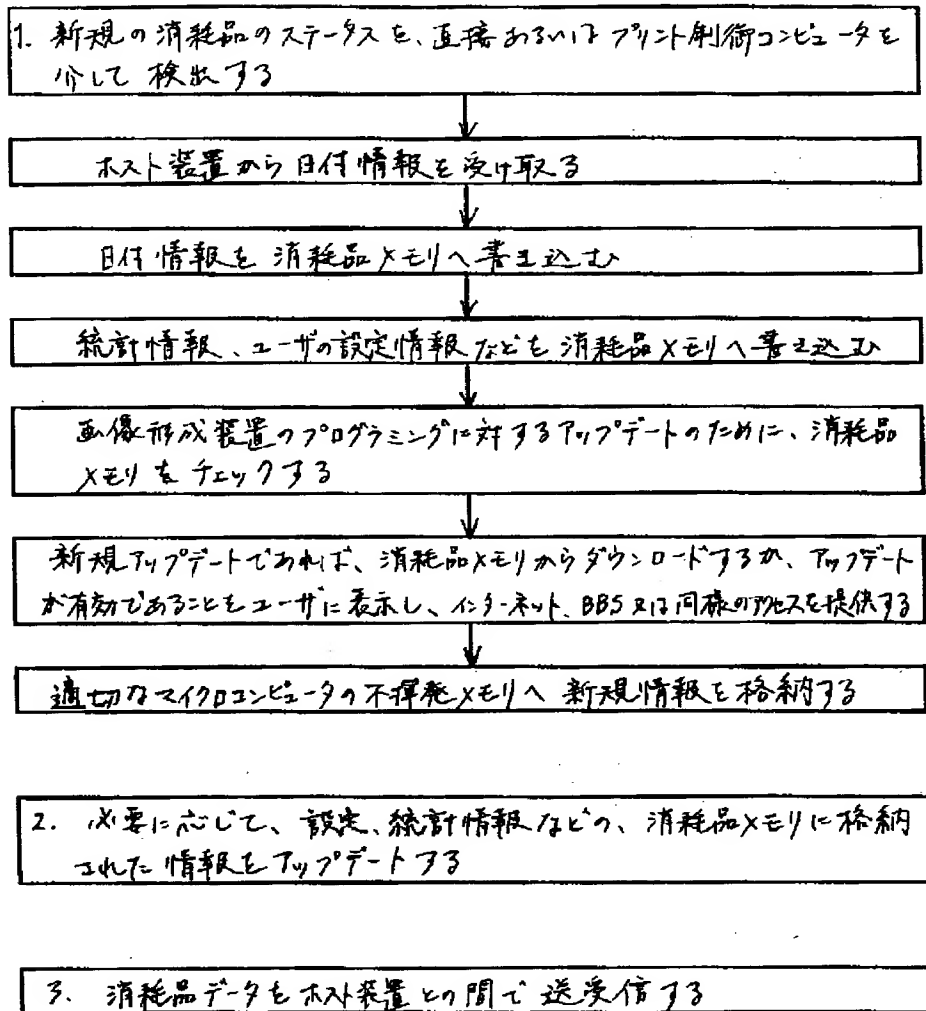 1. 新規の消耗品のステータスを、直接あるいはプリント制御コンピュータを
介して検出する
ホスト装置から日付情報を受け取る
日付情報を消耗品メモリへ書き込む
統計情報、ユーザの設定情報などを消耗品メモリへ書き込む
画像形成装置のプログラミングに対するアップデートのために、消耗品
メモリをチェックする
新規アップデートであれば、消耗品メモリからダウンロードするか、アップデート
が有効であることをユーザに表示し、インターネット、BBS又は同様のアクセスを提供する
適切なマイクロコンピュータの不揮発メモリへ新規情報を格納する
2. 必要に応じて、設定、統計情報などの、消耗品メモリに格納
された情報をアップデートする
3. 消耗品データをホスト装置との間で送受信する